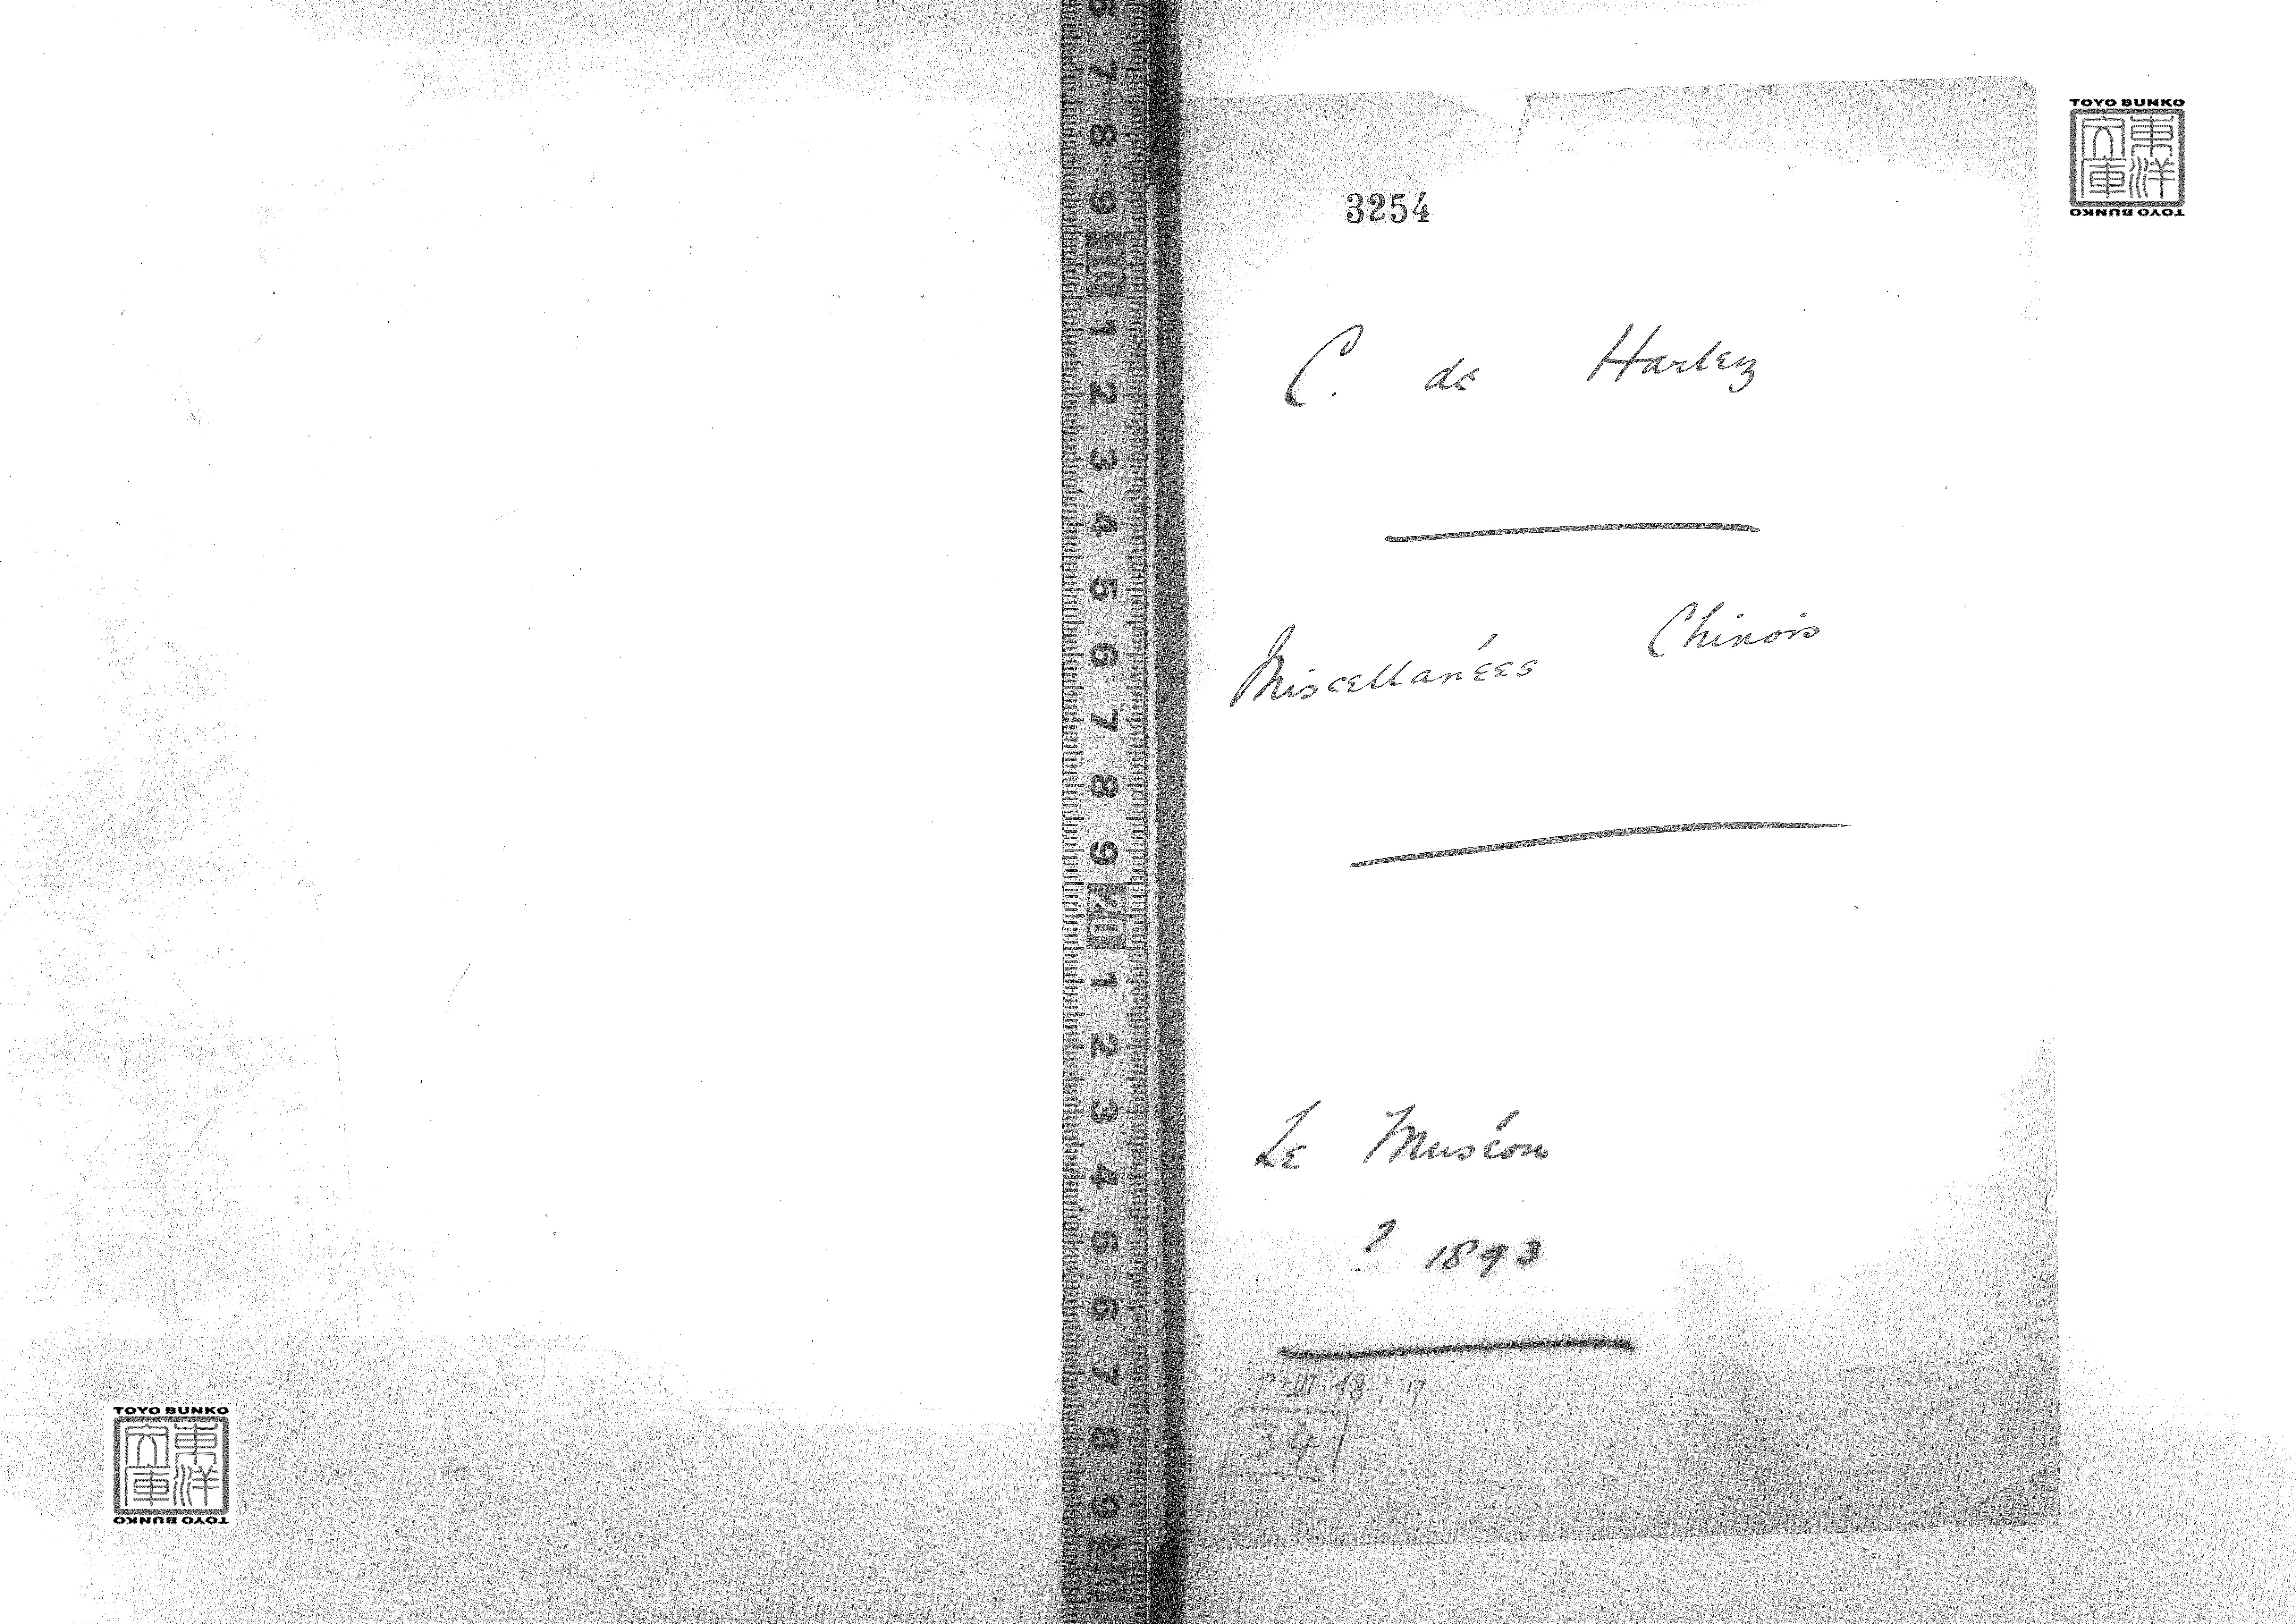 3254
C. de Harlez
Miscellanées Chinois
Le Muséon
? 1893
P-III-48:17
34
TOYO BUNKO
東洋文庫
TOYO BUNKO
TOYO BUNKO
東洋文庫
TOYO BUNKO
6 7 8 9 10 1 2 3 4 5 6 7 8 9 20 1 2 3 4 5 6 7 8 9 30
Tajima JAPAN